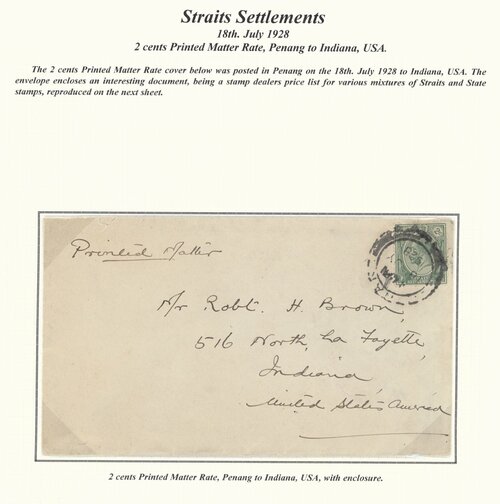 Straits Settlements
18th. July 1928
2 cents Printed Matter Rate, Penang to Indiana, USA.
The 2 cents Printed Matter Rate cover below was posted in Penang on the 18th. July 1928 to Indiana, USA. The
envelope encloses an interesting document, being a stamp dealers price list for various mixtures of Straits and State
stamps, reproduced on the next sheet.
Printed Matter
Mr Robt. H. Brown,
516 North, La Fayette,
Indiana
United States America
2 cents Printed Matter Rate, Penang to Indiana, USA, with enclosure.